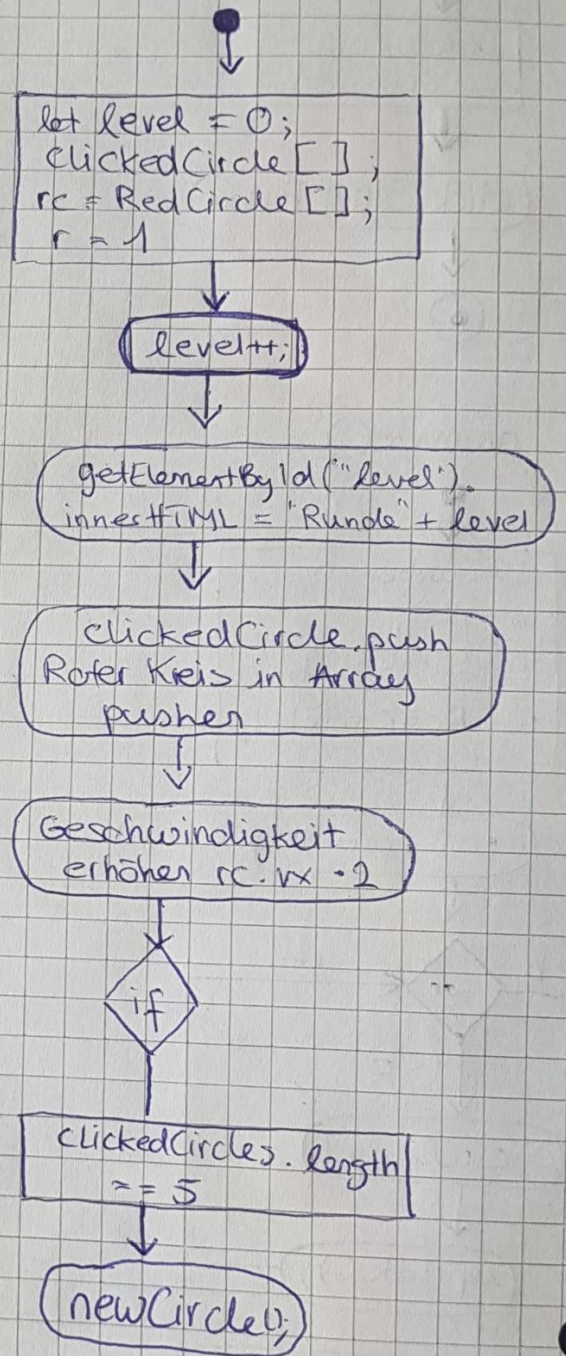 let level = 0;
clickedCircle [ ] ;
rc = RedCircle [ ];
r = 1
level++;
getElementById("level").
innerHTML = "Runde" + level
clickedCircle.push
Roter Kreis in Array
pushen
Geschwindigkeit
erhöhen rc.vx · 2
if
clickedCircles.length
== 5
newCircle();